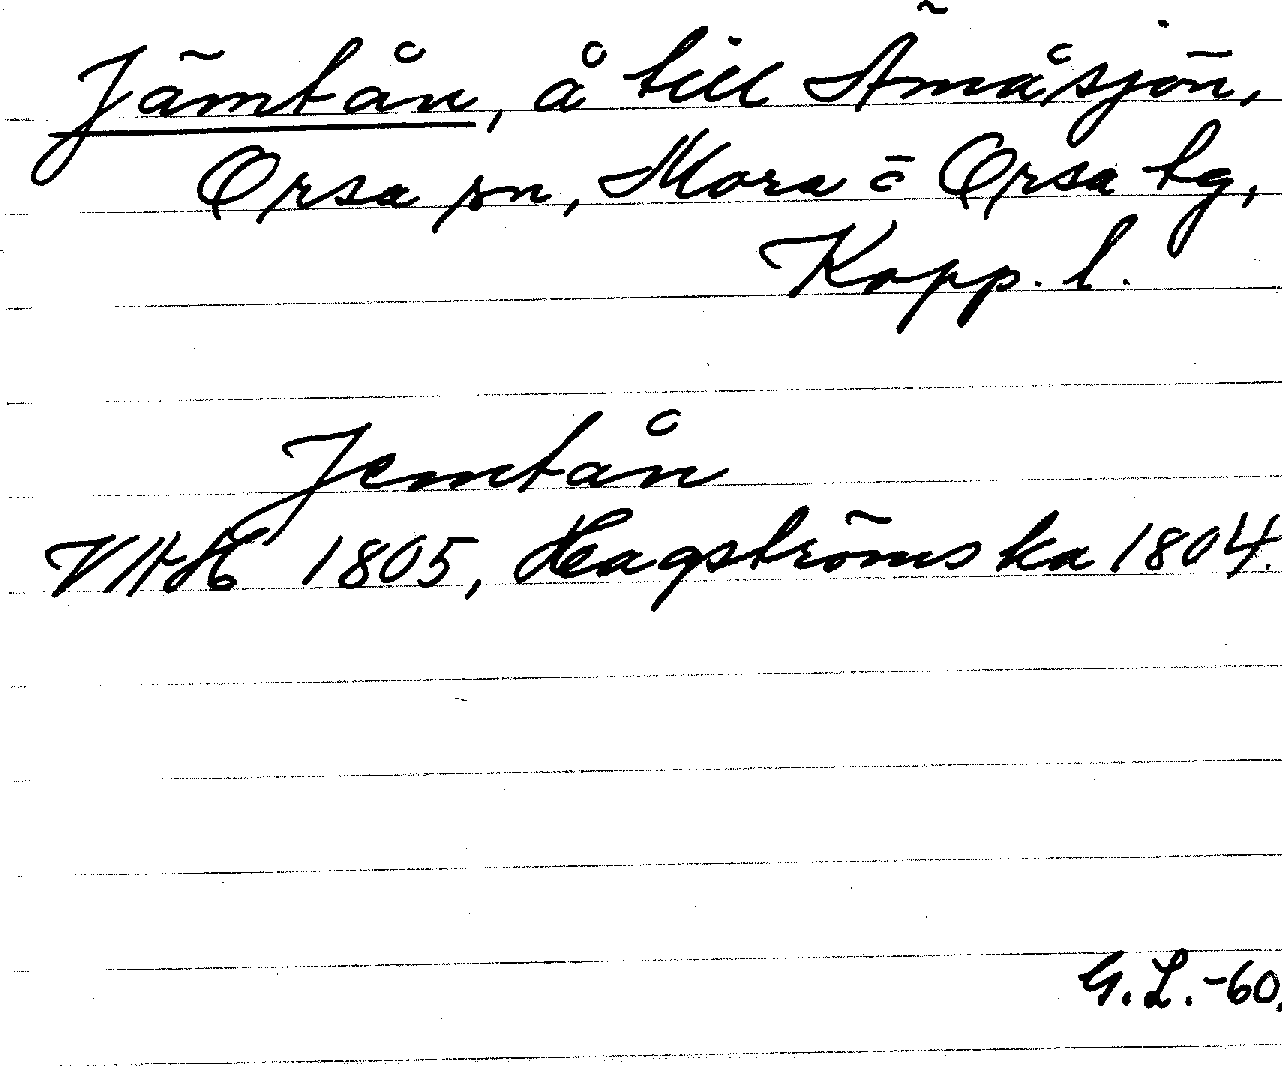 Jämtån, å till Ämåsjön,
Orsa sn, Mora = Orsa tg,
Kopp. l.
Jemtån
VHH 1805, Hagströmska 1804.
G.L.-60.